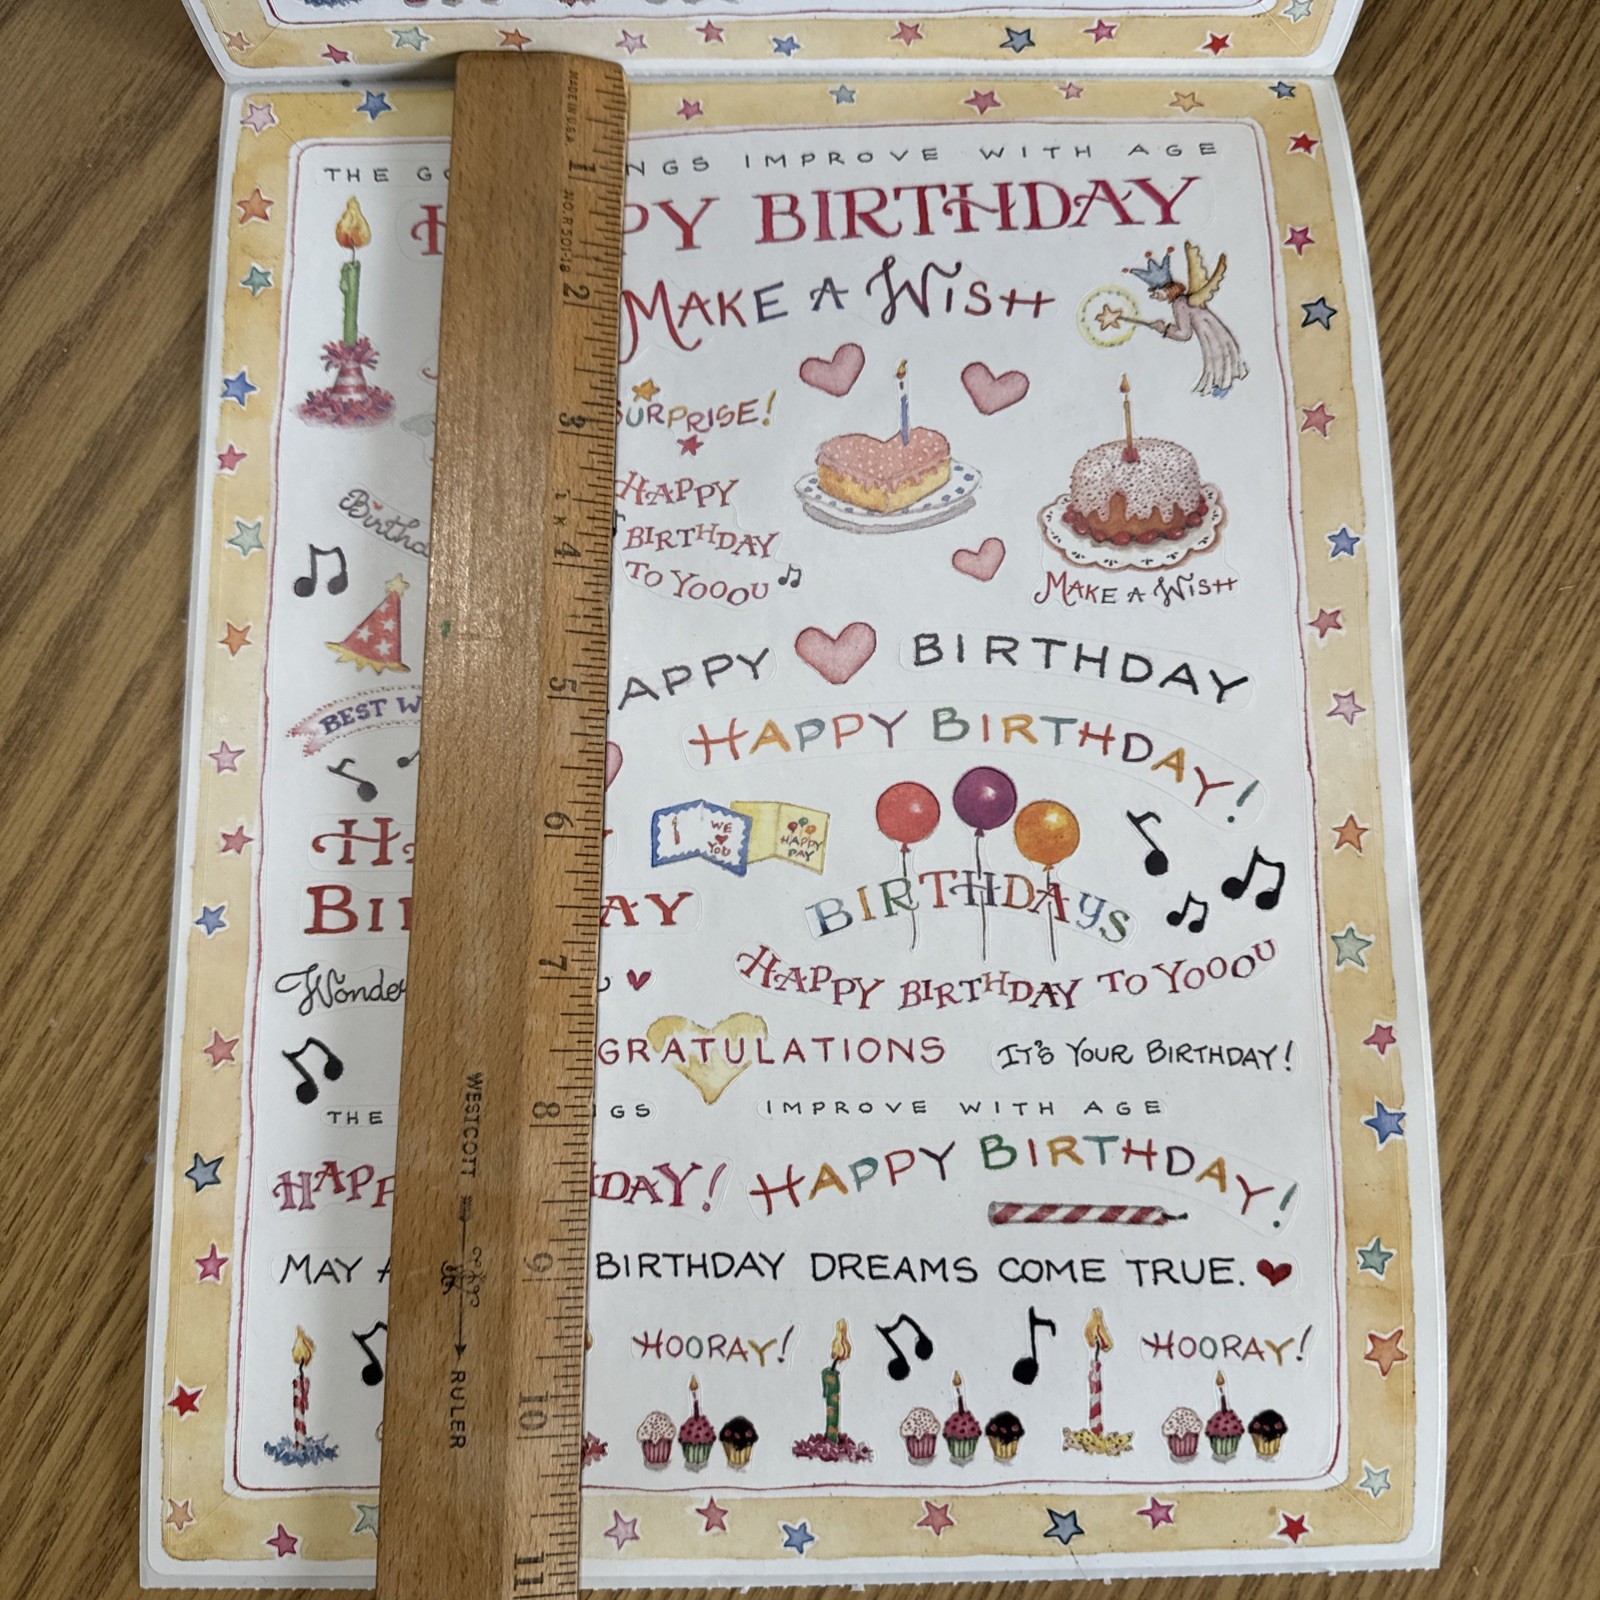 THE GO NGS IMPROVE WITH AGE
H PY BIRTHDAY
MAKE A WISH
SURPRISE!
HAPPY
BIRTHDAY
TO YOOOU
Birthd
MAKE A WISH
APPY BIRTHDAY
BEST W
HAPPY BIRTHDAY!
WE
YOU
HAPPY
DAY
HA
BI AY
BIRTHDAYS
Wonde
HAPPY BIRTHDAY TO YOOOU
GRATULATIONS
IT'S YOUR BIRTHDAY!
THE GS IMPROVE WITH AGE
HAPP DAY!
HAPPY BIRTHDAY!
MAY A BIRTHDAY DREAMS COME TRUE.
HOORAY!
HOORAY!
MADE IN U.S.A.
1
NO. R501-18
2
3
4
5
6
7
8
9
10
11
WESTCOTT
RULER